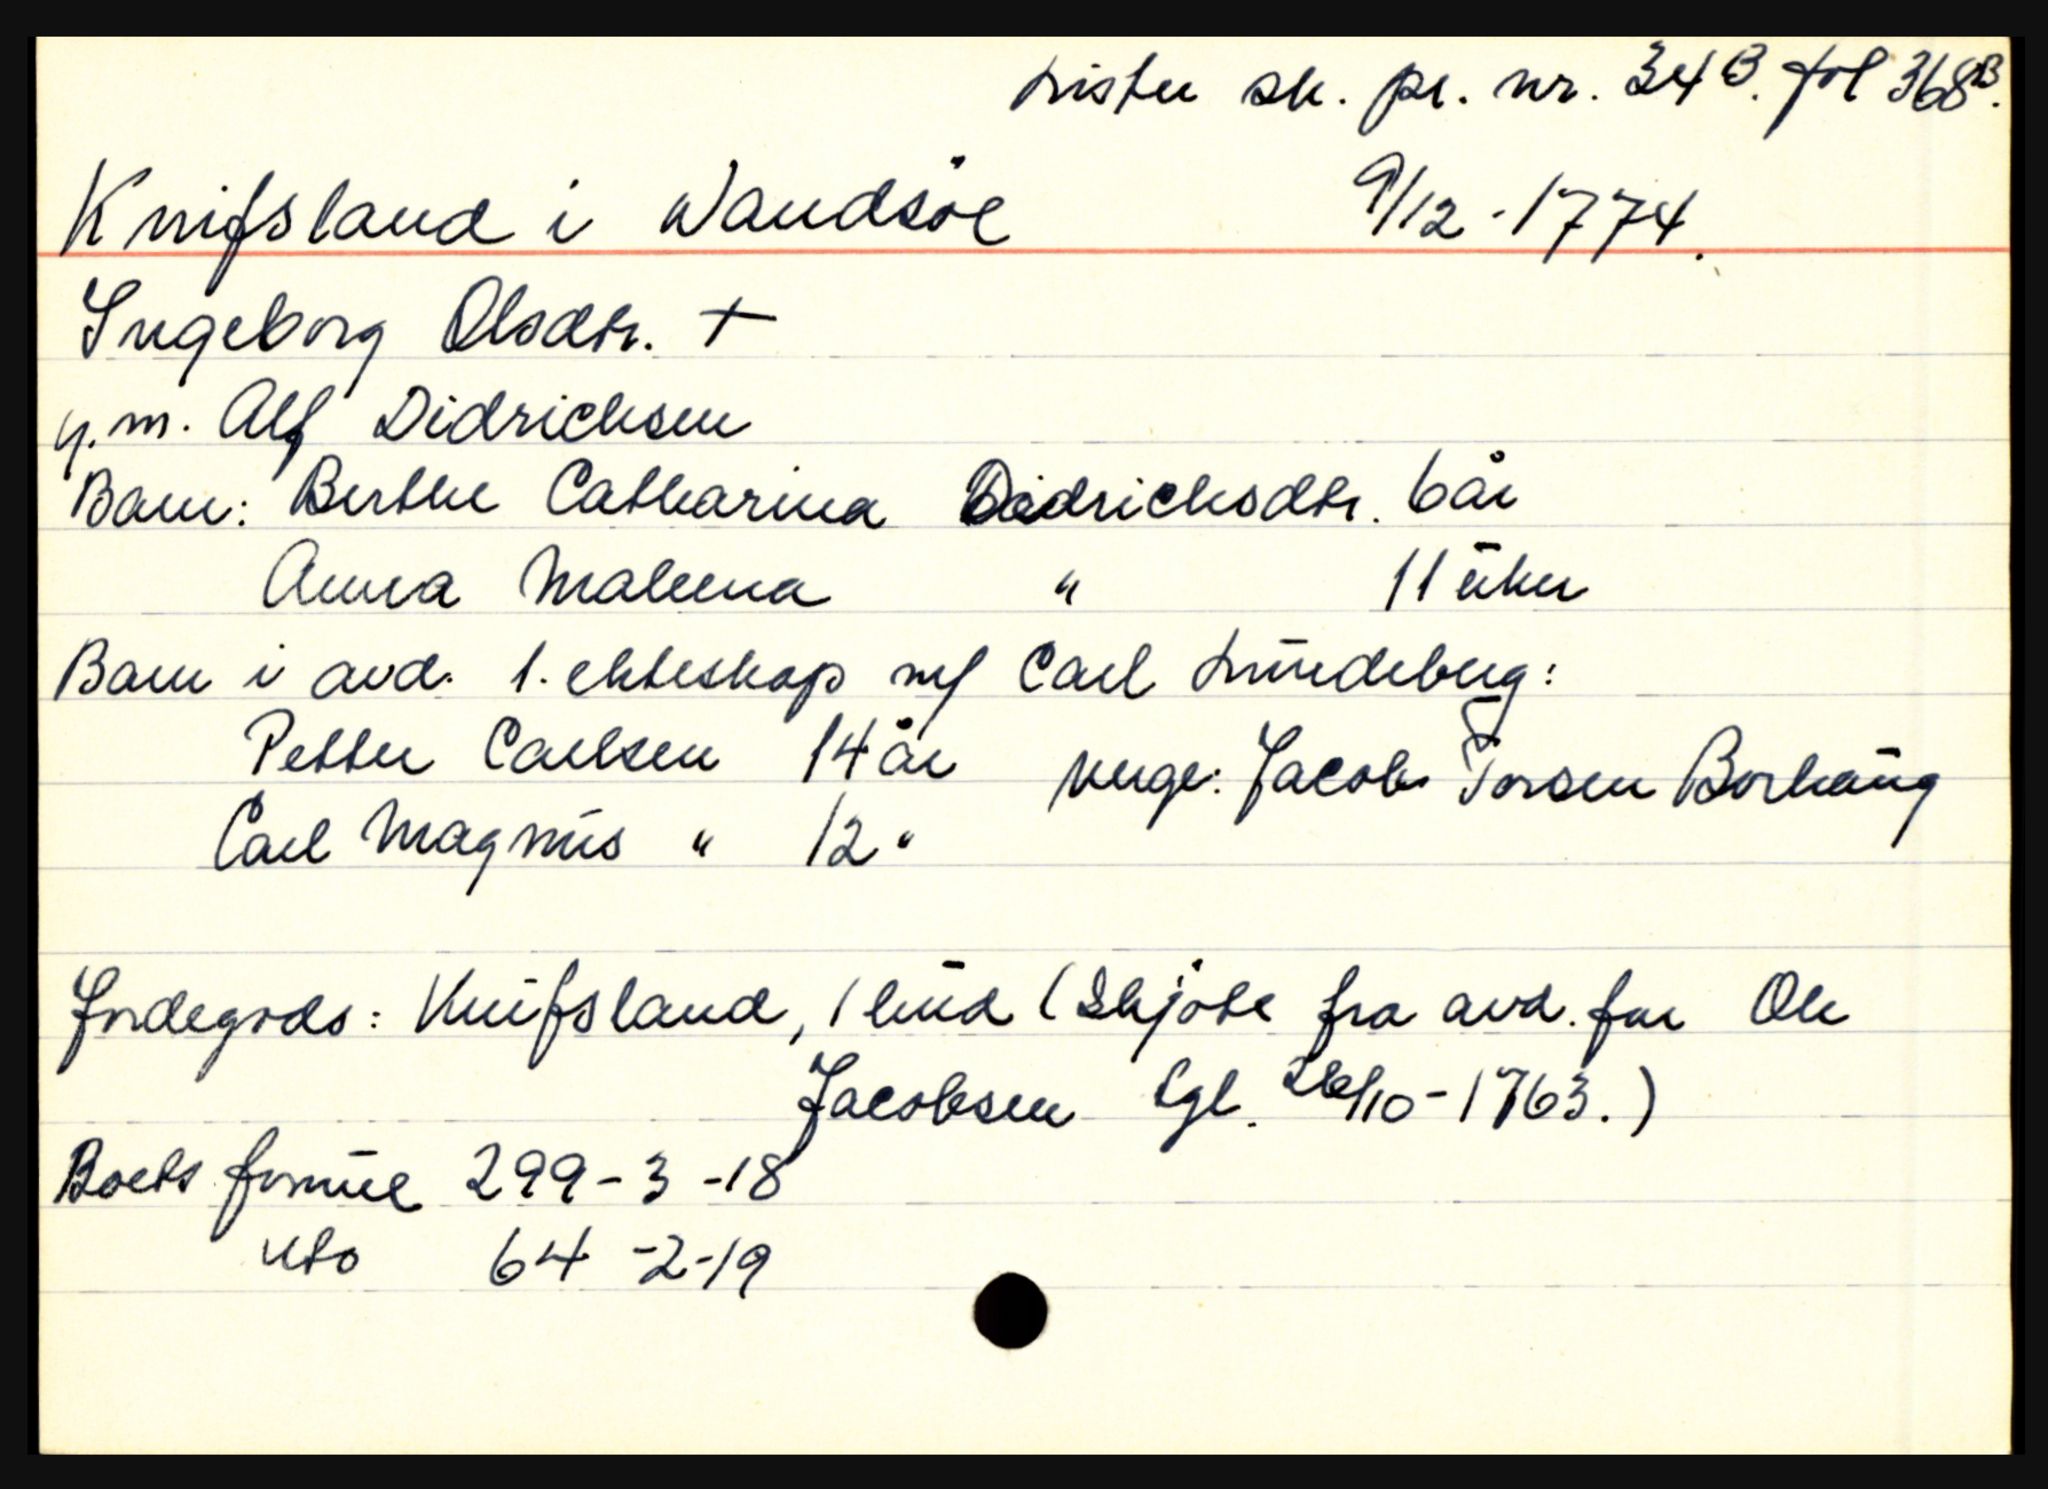 Lister sk. pr. nr. 34 B. fol 368B.
Knifsland i Wandsöe 9/12 - 1774.
Ingeborg Olsdtr. +
g.m. Alf Didrichsen
Barn: Berthe Catharina Didrichsdtr. 6 år
Anna Maleena " 11 ūker
Barn i avd. 1. ekteskap m/ Carl Lūndeberg:
Petter Carlsen 14 år Verge: Jacob Torsen Borhaūg
Carl Magnūs " 12 "
Jordegods: Knifsland, 1 hūd (Skjöte fra avd. far Ole
Jacobsen tgl. 26/10 - 1763.)
Boets formūe 299 - 3 - 18
nto 64 - 2 - 19